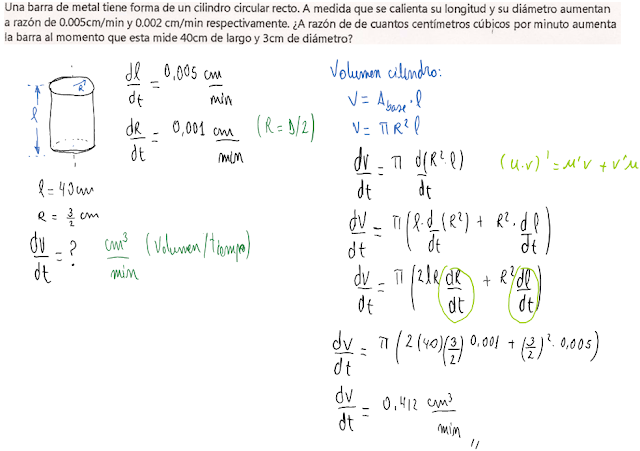 Una barra de metal tiene forma de un cilindro circular recto. A medida que se calienta su longitud y su diámetro aumentan
a razón de 0.005cm/min y 0.002 cm/min respectivamente. ¿A razón de de cuantos centímetros cúbicos por minuto aumenta
la barra al momento que esta mide 40cm de largo y 3cm de diámetro?
R
l
dl/dt = 0,005 cm/min
dR/dt = 0,001 cm/min (R = D/2)
l = 40 cm
R = 3/2 cm
dv/dt = ? cm³/min (Volumen/tiempo)
Volumen cilindro:
V = Abase · l
V = π R² l
dv/dt = π d(R²·l)/dt (u·v)' = u'v + v'u
dV/dt = π (l · d/dt (R²) + R² · d/dt l)
dV/dt = π (2lR dR/dt + R² dl/dt)
dv/dt = π (2(40)(3/2) 0,001 + (3/2)² · 0,005)
dv/dt = 0,412 cm³/min